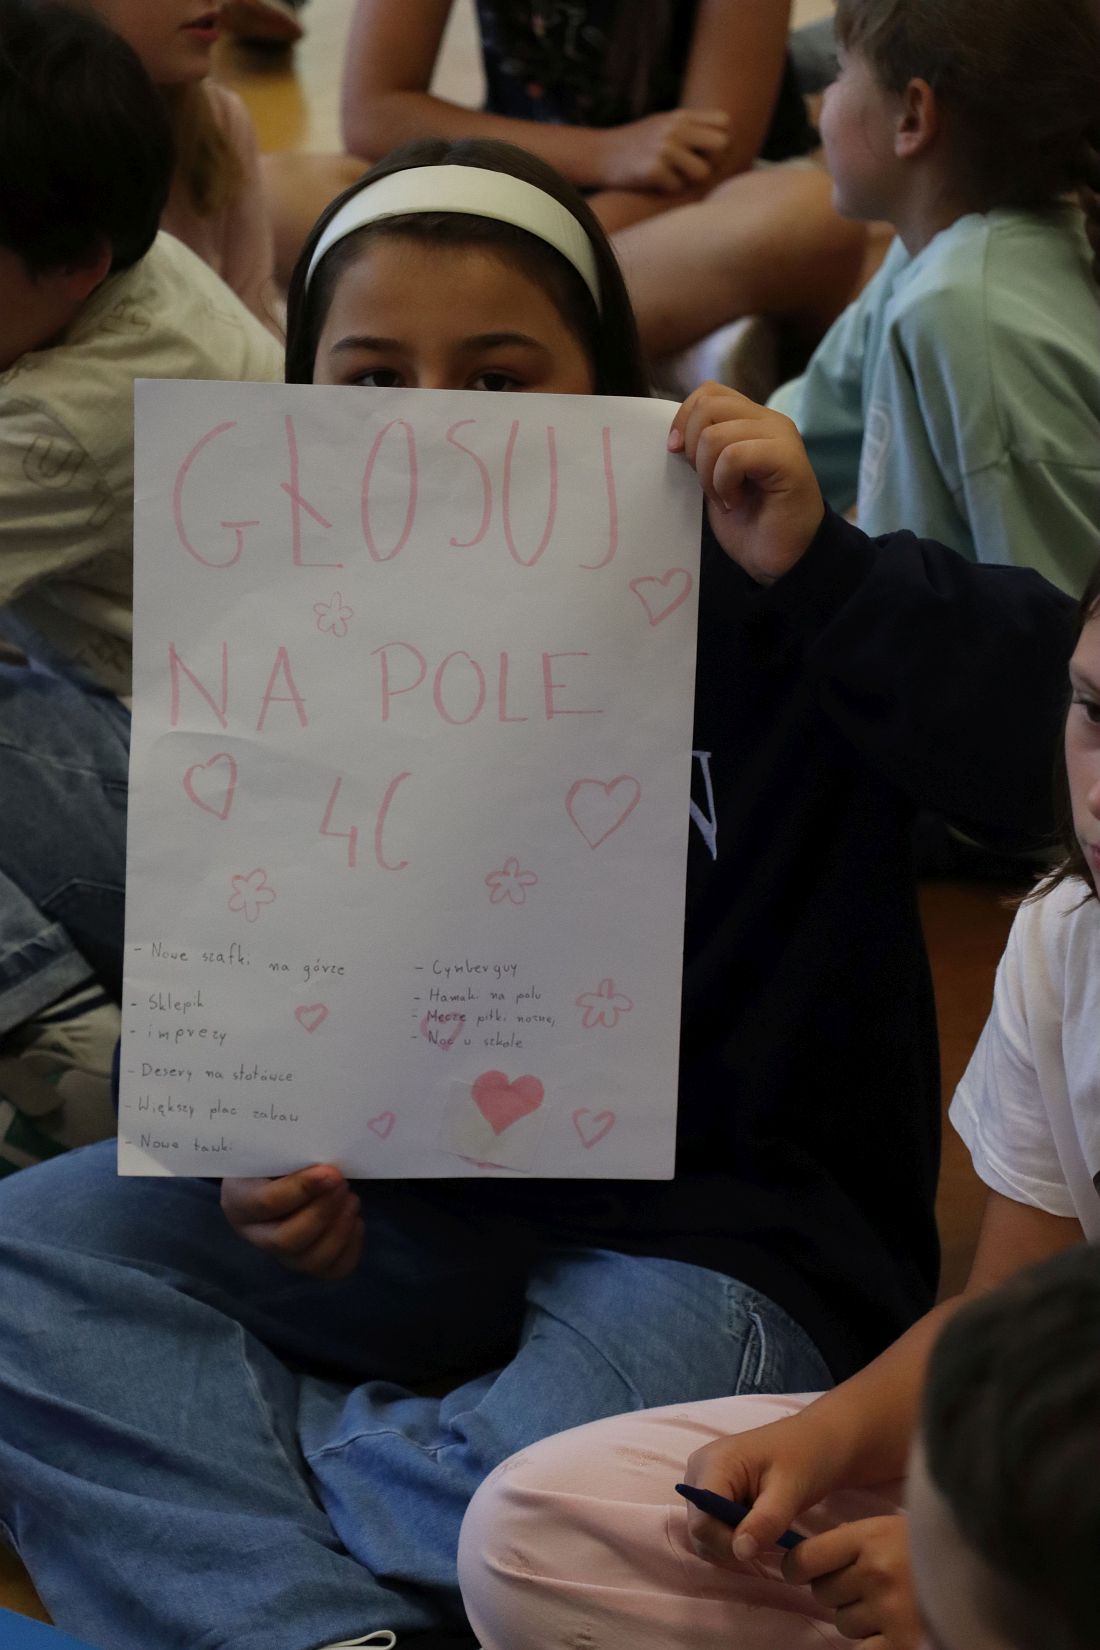 GŁOSUJ
NA POLE
4C
- Nowe szafki na górze
- Sklepik
- imprezy
- Desery na stołówce
- Większy plac zabaw
- Nowe ławki
- Cymberguy
- Hamaki na polu
- Mecze piłki nożnej
- Noc w szkole
N